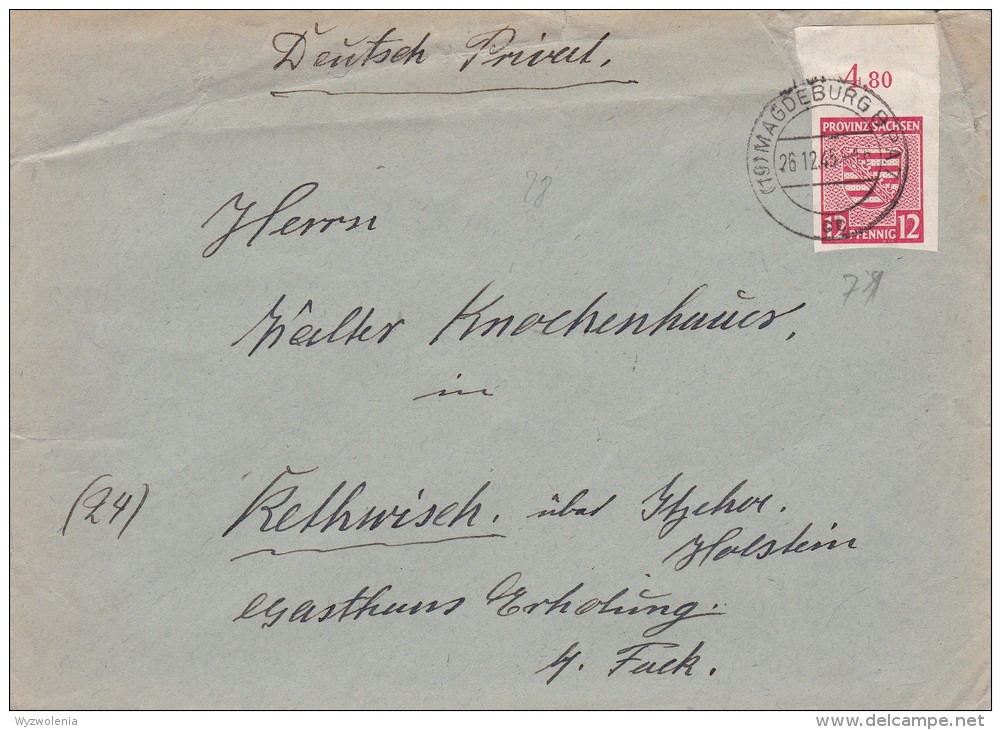 Deutsch Privat.
4.80
(19) MAGDEBURG
26.12.45
PROVINZ SACHSEN
12 PFENNIG 12
28
Herrn
Walter Knochenhauer,
in
(24) Rethwisch. über Itzehoe.
Holstein
Gasthaus Erholung.
Wyzwolenia
delcampe.net